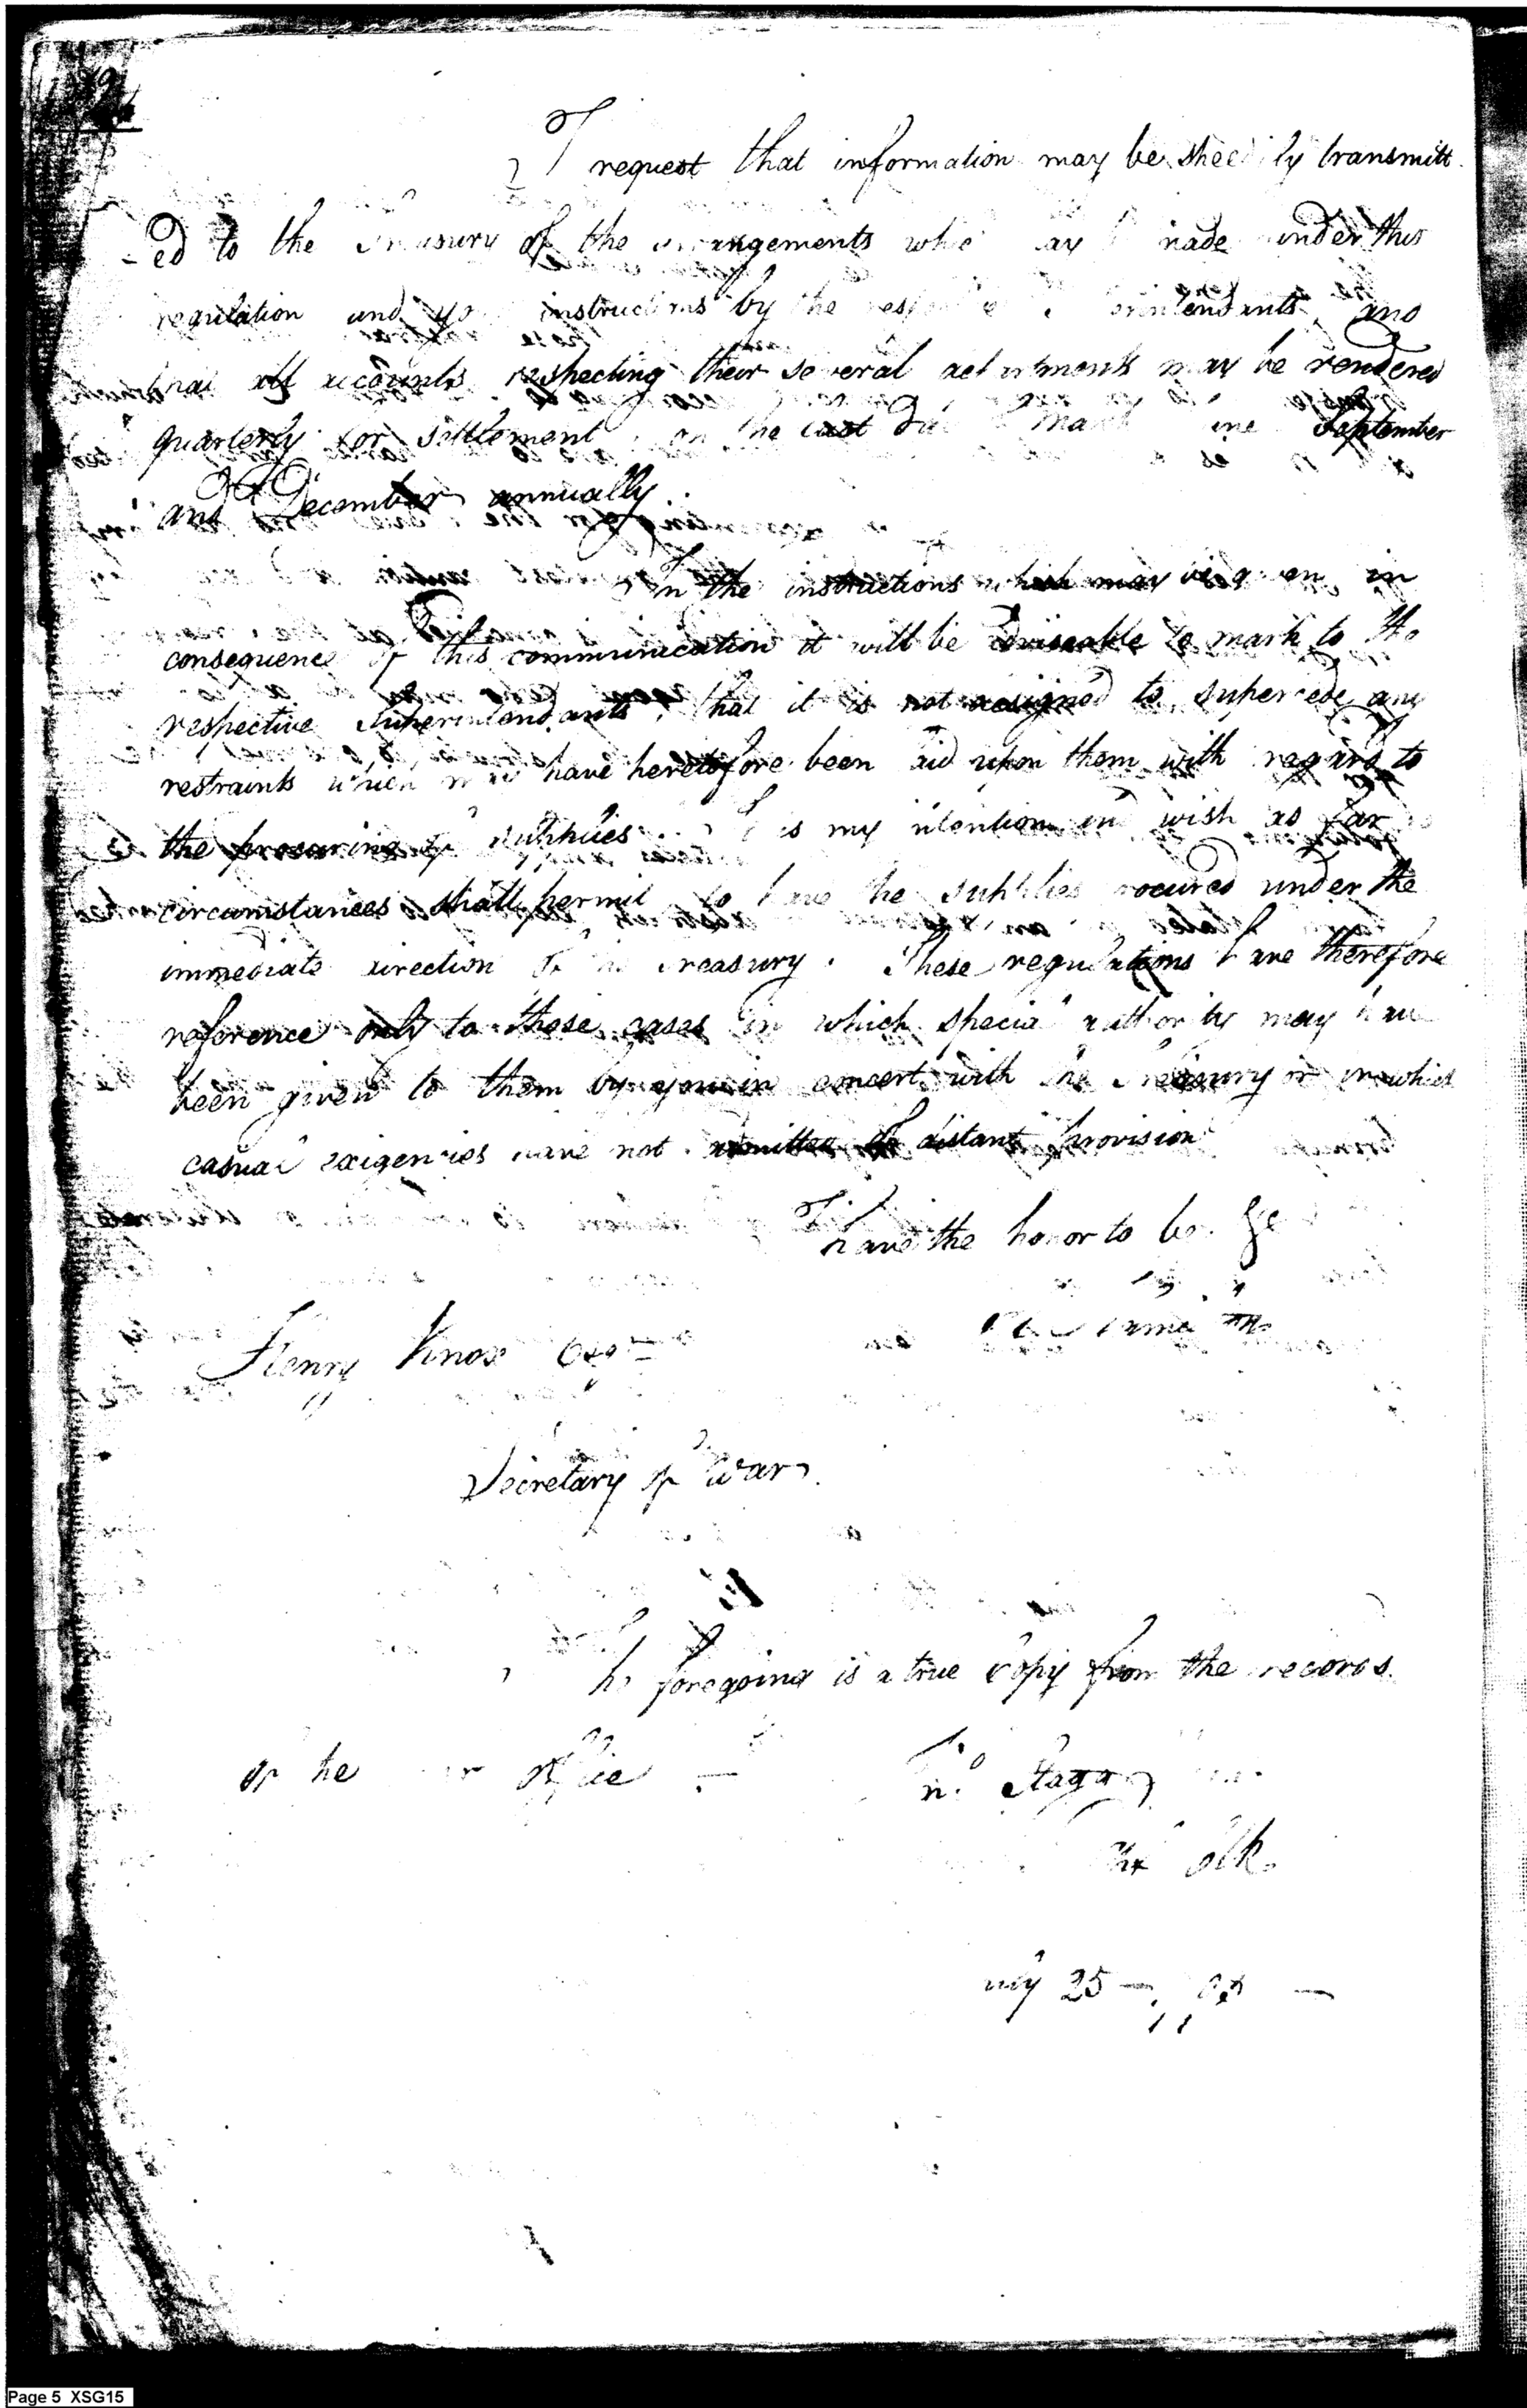 I request that information may be speedily transmitt
-ed to the Treasury of the arrangements which may be made under this
regulation and your instructions by the respective Superintendants, and
that all accounts respecting their several departments may be rendered
quarterly for settlement, on the last Day March June September
and December annually.
In the instructions which may be given in
consequence of this communication it will be adviseable to mark to the
respective Superintendants, that it is not designed to supercede any
restraints which may have heretofore been laid upon them with regard to
the procuring of supplies. It is my intention and wish as far as
circumstances shall permit to have the supplies procured under the
immediate direction of the Treasury. These regulations have therefore
reference only to those cases in which special authority may have
been given to them by you in concert with the Treasury or in which
casual exigencies have not admitted of distant provision
I have the honor to be &c
Henry Knox Esqr
Secretary of War
The foregoing is a true Copy from the records
of the War Office —
Jno Stagg
Clk.
25 —
Page 5 XSG15